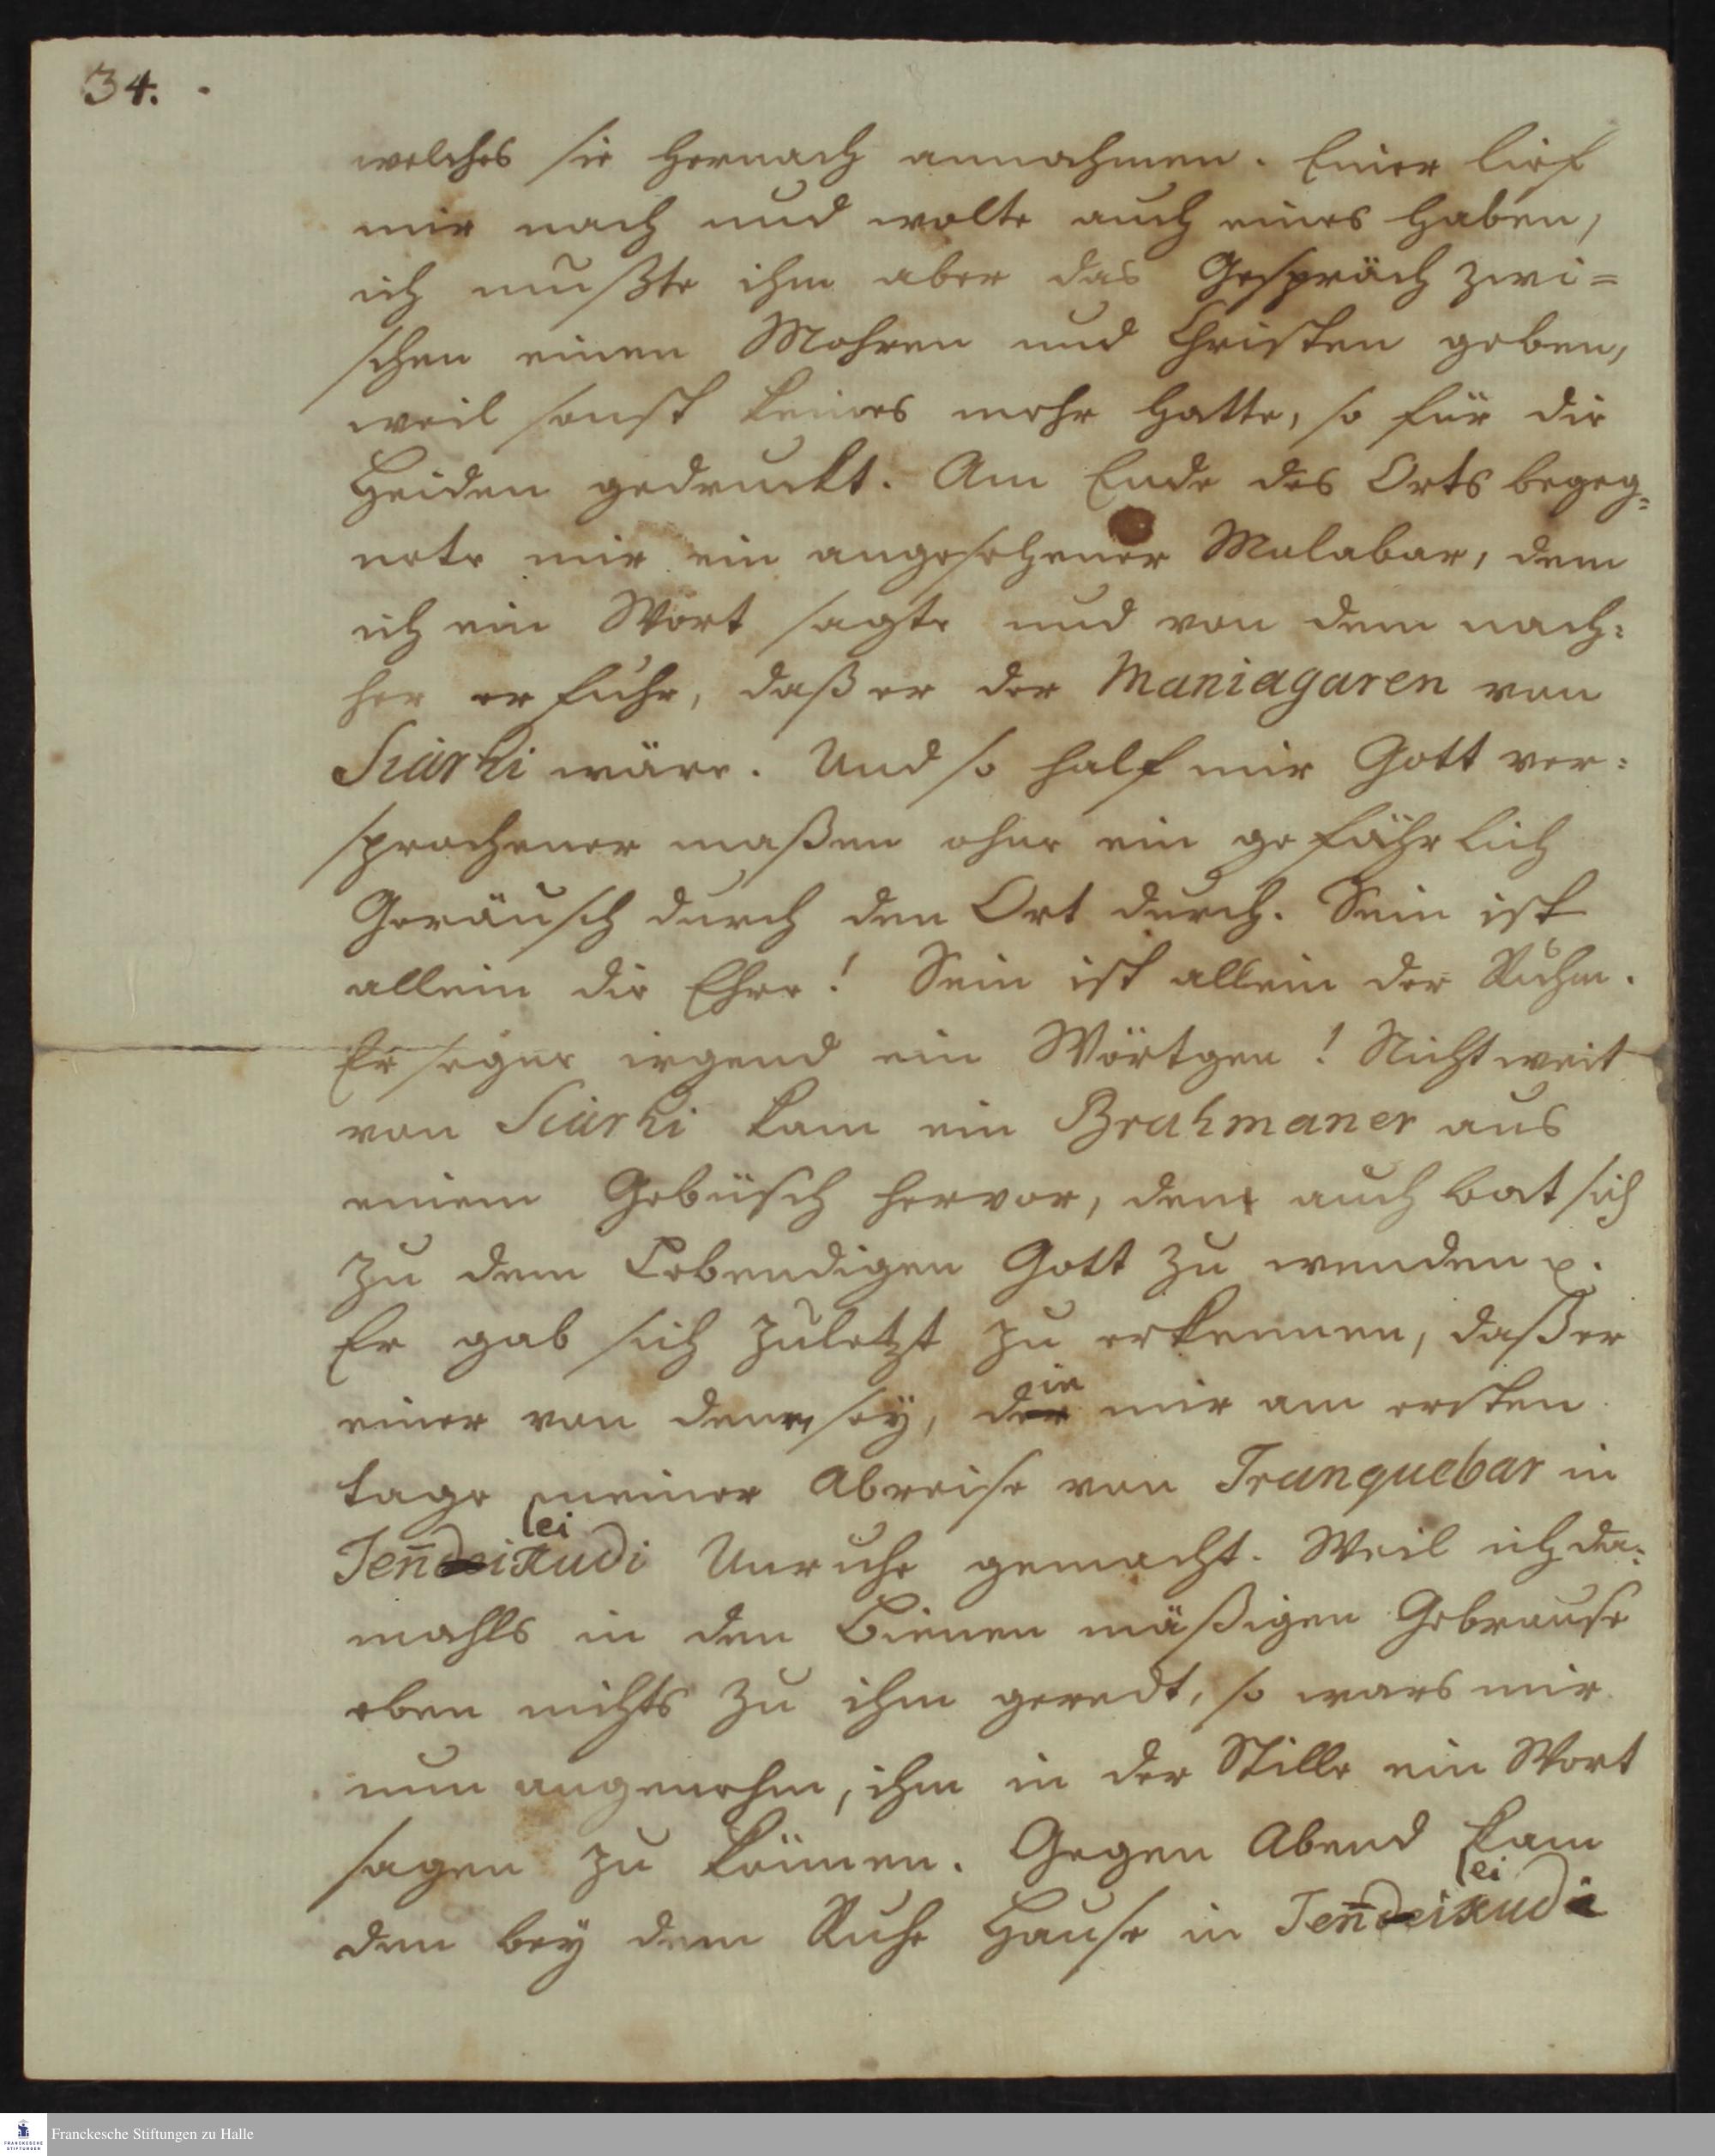 34.
welches sie hernach annahmen. Einer lief
mir nach und wolte auch eines haben,
ich mußte ihm aber das Gespräch zwi=
schen einen Mohren und Christen geben,
weil sonst keines mehr hatte, so für die
Heiden gedruckt. Am Ende des Orts begeg=
nete mir ein angesehener Malabar, dem
ich ein Wort sagte und von dem nach=
her erfuhr, daß er der Maniagaren von
Siarhi wäre. Und so half mir Gott ver=
sprochener maßen ohne ein gefährlich
Geräusch durch den Ort durch. Sein ist
allein die Ehre! Sein ist allein der Ruhm.
Er segne irgend ein Wörtgen! Nicht weit
von Siarhi kam ein Brahmaner aus
einem Gebüsch hervor, dem auch bat sich
zu dem Lebendigen Gott zu wenden p.
Er gab sich zuletzt zu erkennen, daß er
einer von denen sey, die mir am ersten
tage meiner Abreise von Tranquebar in
Ten̄leikudi Unruhe gemacht. Weil ich da=
mahls in den Bienen mäßigen Gebrause
eben nichts zu ihm geredt, so wars mir
nun angenehm, ihm in der Stille ein Wort
sagen zu können. Gegen Abend kam
den bey dem Ruhe Hause in Ten̄leikudi
Franckesche Stiftungen zu Halle